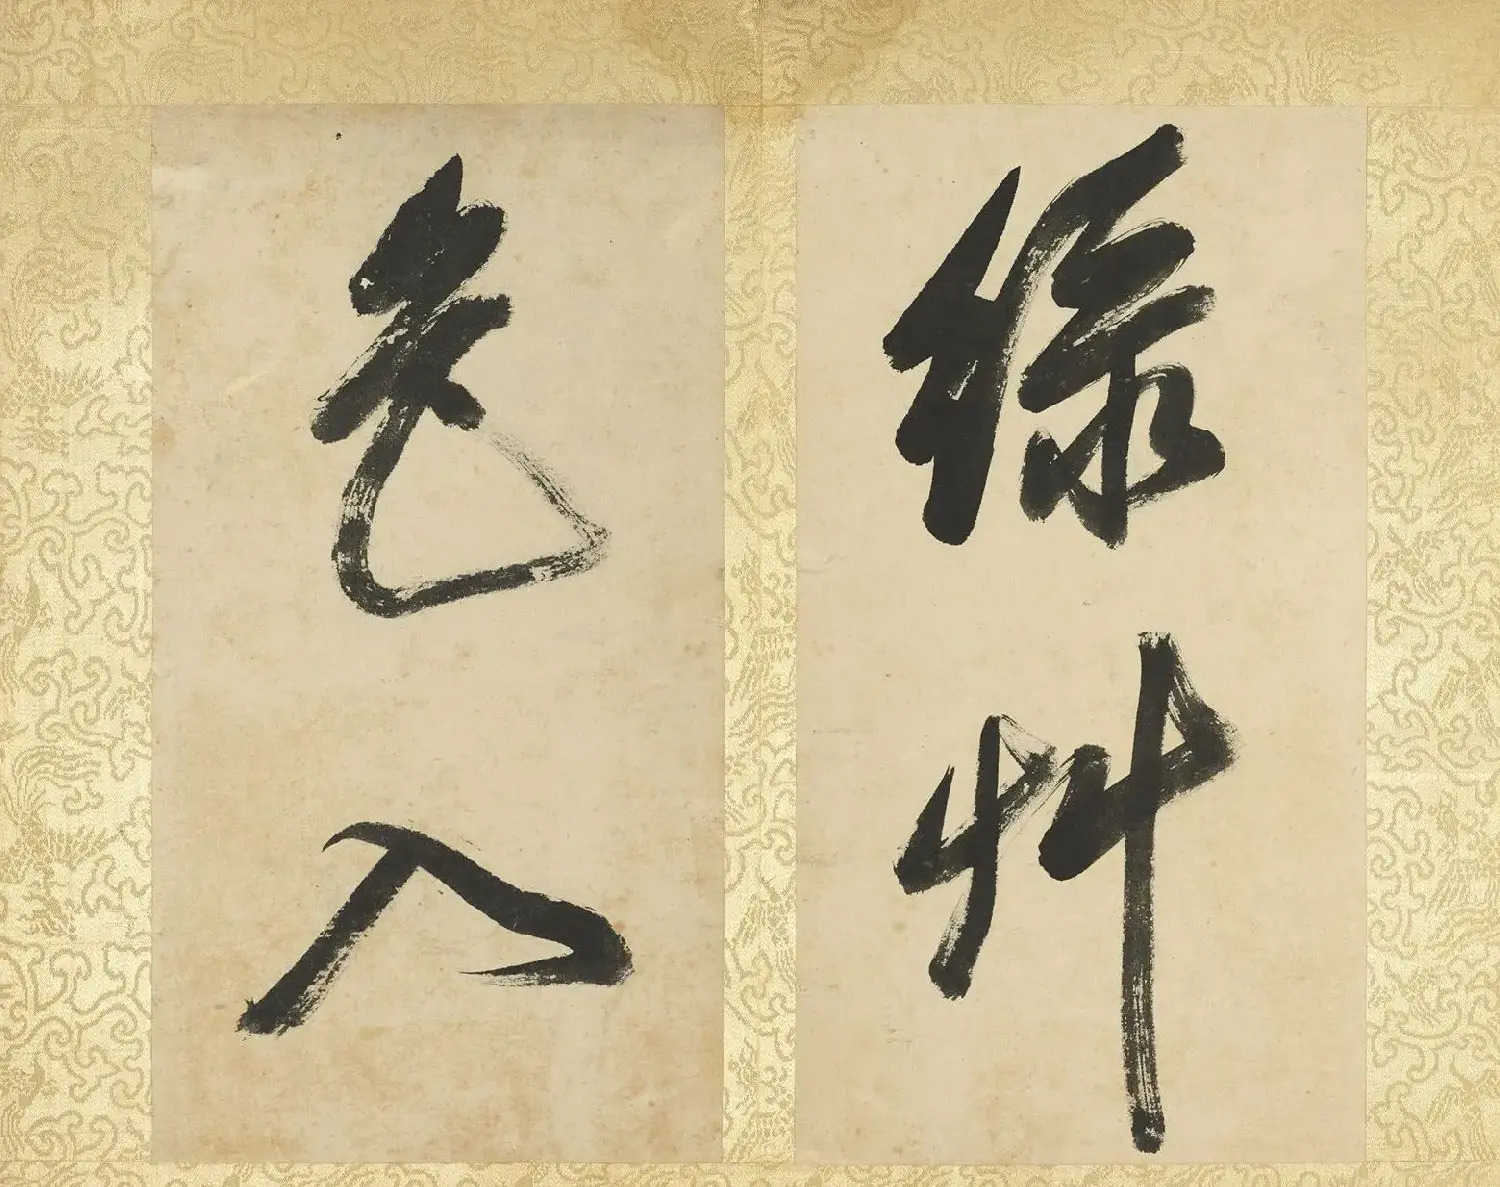 綠艸
色入